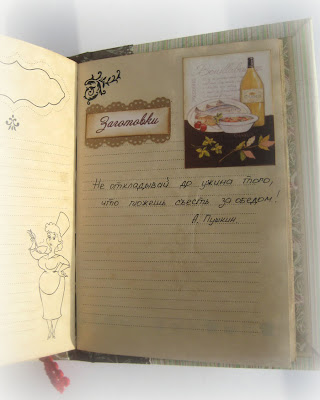 Заготовки
Не откладывай до ужина того,
что можешь съесть за обедом!
А. Пушкин